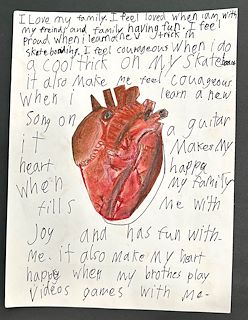 I Love my family. I feel loved when iam with
my freinds and family having fun. I feel
proud when i learn a new trick in
skateboarding. I feel courageous when i do
a cool trick on my skateboard
it also make me feel couageous
when I learn a new
song on a guitar
it makes my
heart happy
when my family
fills me with
Joy and has fun with
me. it also make my heart
happy when my brothes play
videos games with me.